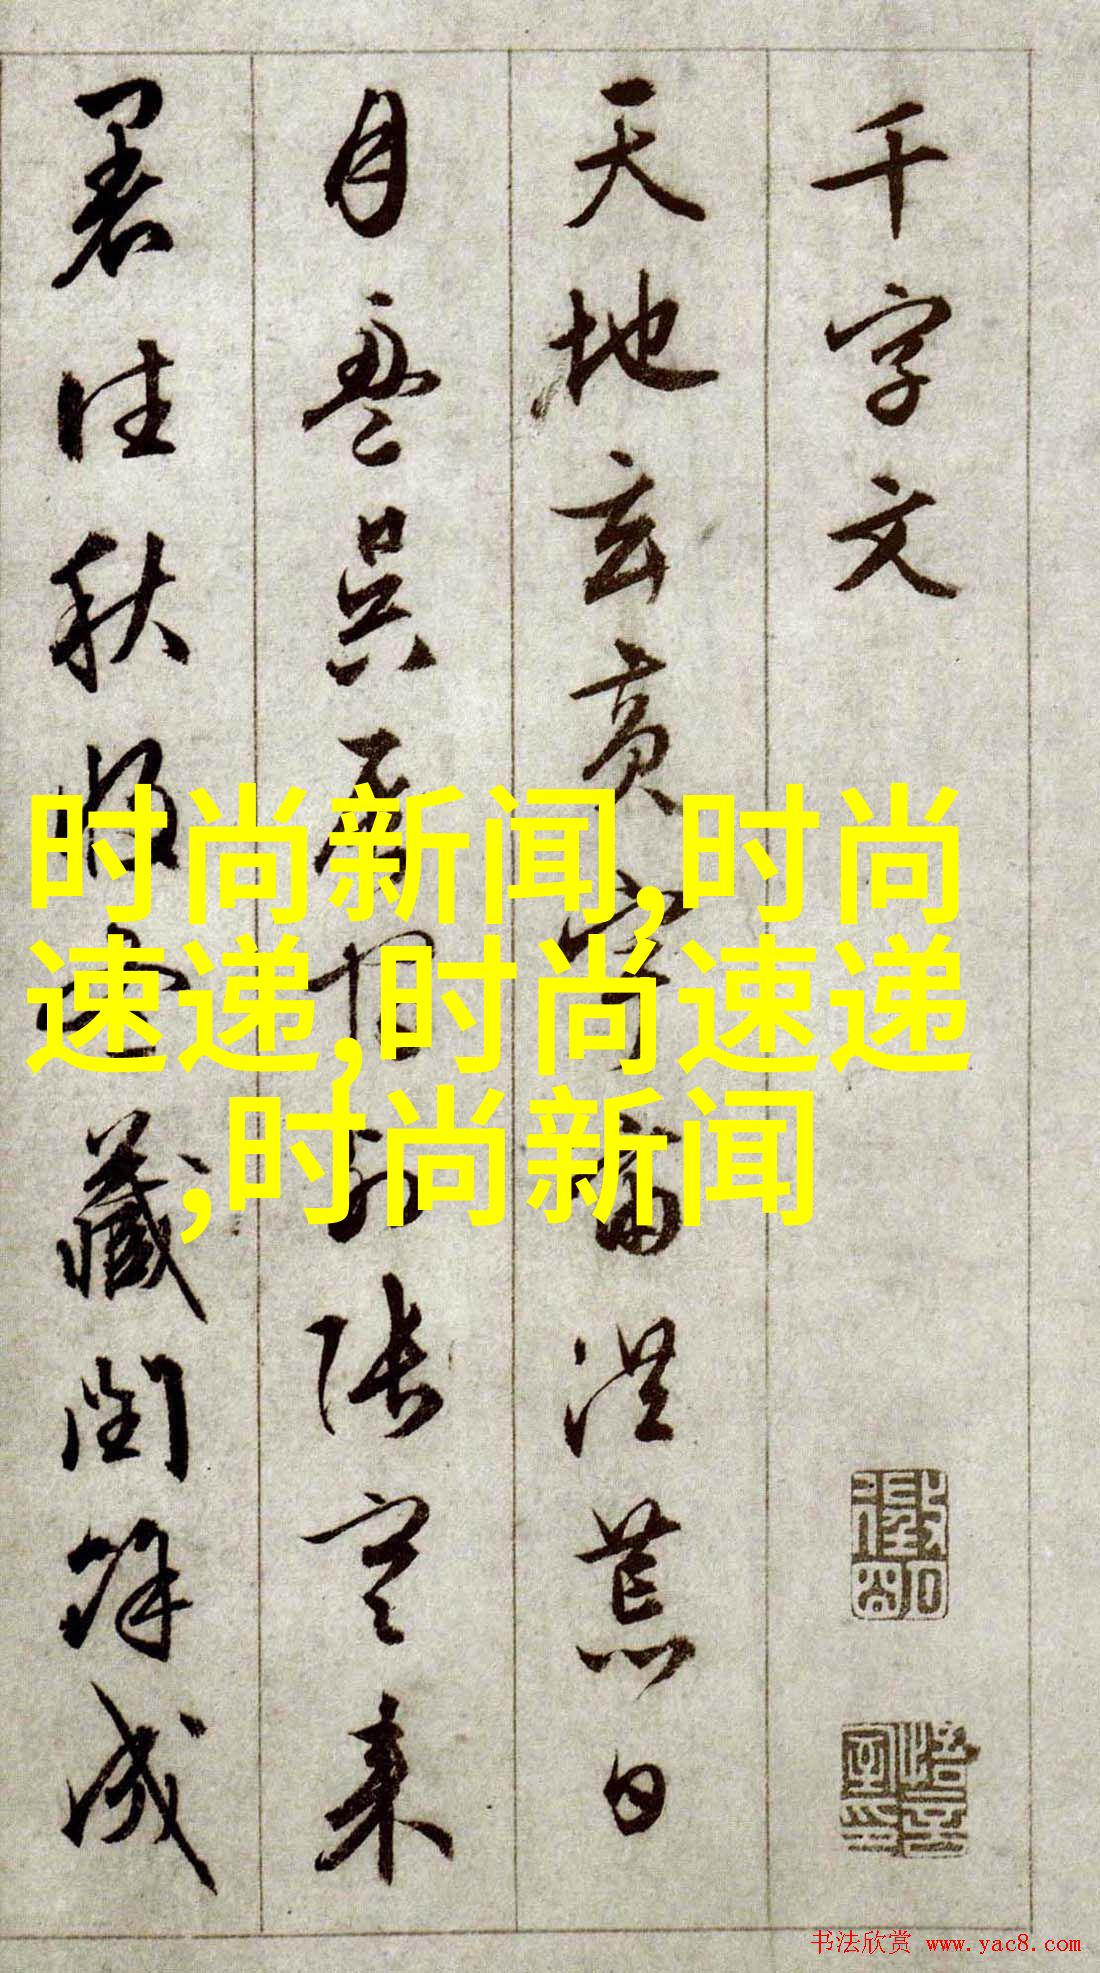 千字文
天地玄黄宇宙洪荒日
月盈昃辰宿列张寒来
暑往秋收冬藏闰余成
时尚新闻,时尚
速递,时尚速递
,时尚新闻
书法欣赏 www.yac8.com